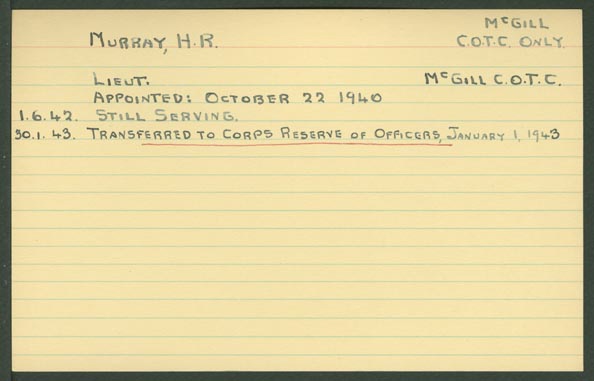 McGILL
MURRAY, H.R. C.O.T.C. ONLY.
LIEUT. McGILL C.O.T.C.
APPOINTED: OCTOBER 22 1940
1.6.42. STILL SERVING.
30.1.43. TRANSFERRED TO CORPS RESERVE OF OFFICERS, JANUARY 1, 1943